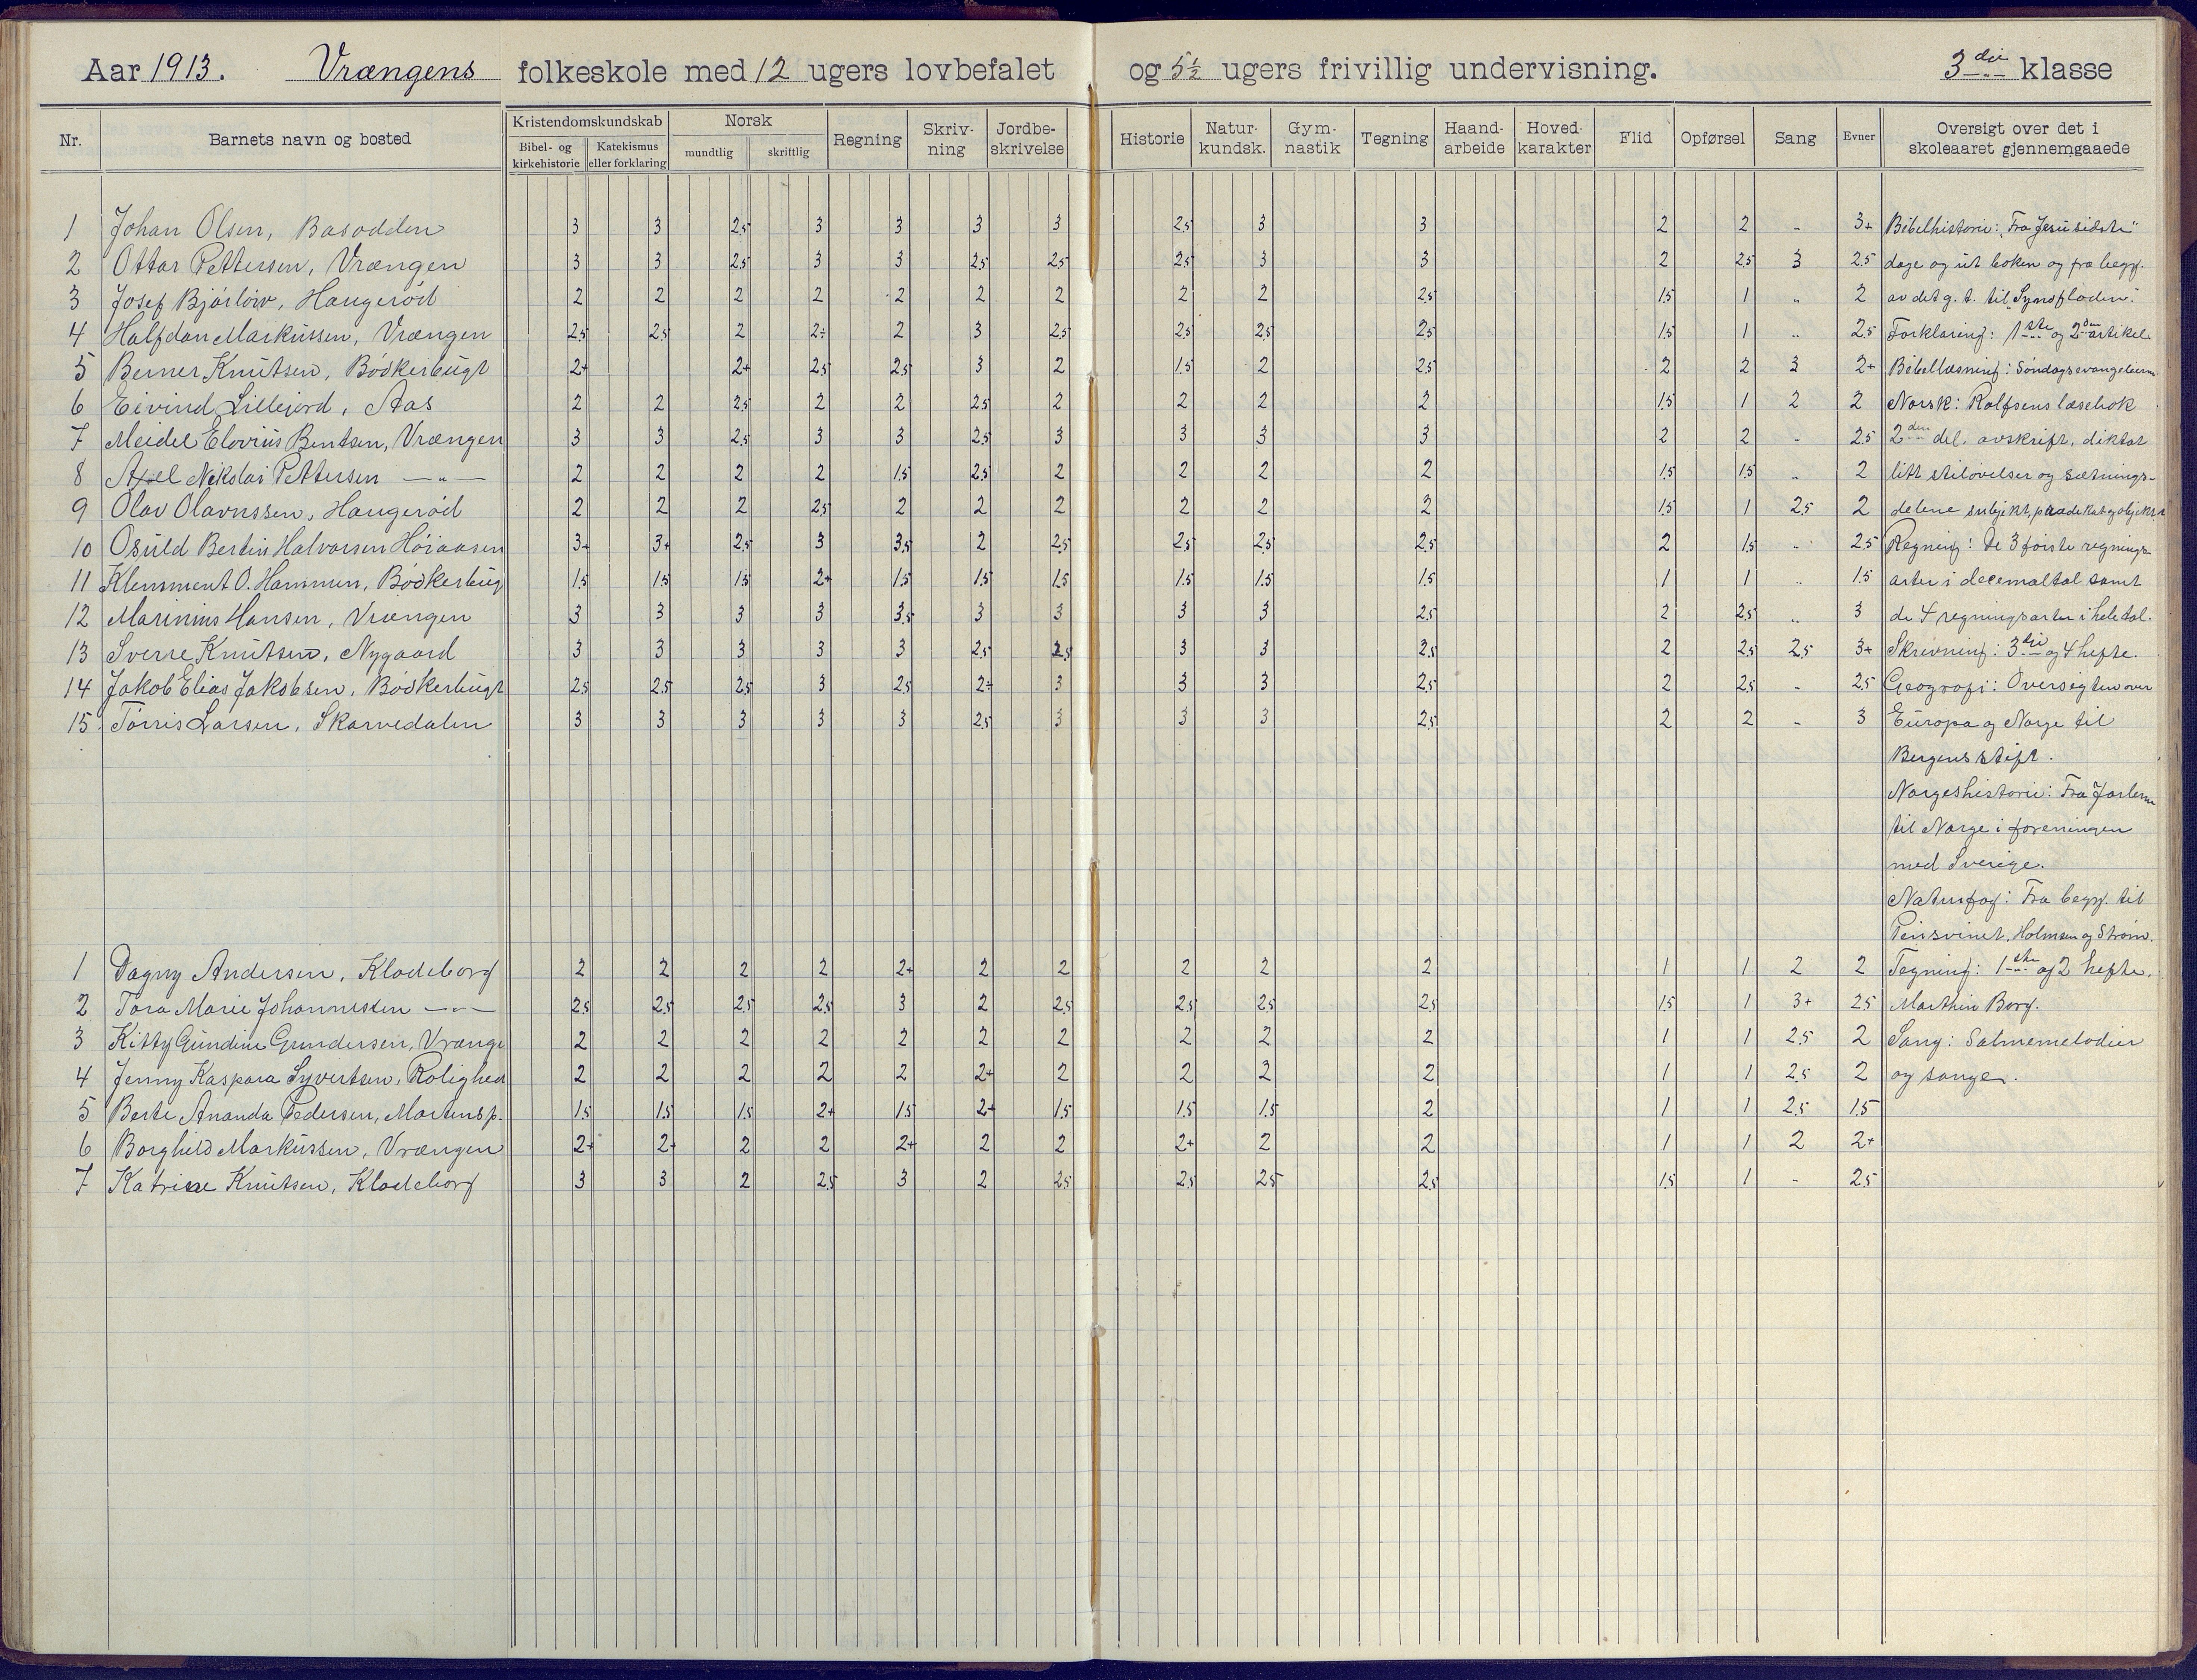 Aar 1913. Vrængens folkeskole med 12 ugers lovbefalet og 5½ ugers frivillig undervisning. 3die klasse
Nr. Barnets navn og bosted Kristendomskundskab Bibel- og kirkehistorie Katekismus eller forklaring Norsk mundtlig skriftlig Regning Skriv-ning Jordbe-skrivelse Historie Natur-kundsk. Gym-nastik Tegning Haand-arbeide Hoved-karakter Flid Opførsel Sang Evner Oversigt over det i skoleaaret gjennemgaaede
1 Johan Olsen, Basodden 3 3 2.5 3 3 3 3 2.5 3 3 2 2 - 3+ Bibelhistorie: "Fra Jesu sidste"
2 Ottar Pettersen, Vrængen 3 3 2.5 3 3 2.5 2.5 2.5 3 3 2 2.5 3 2.5 dage og ut boken og fra begy.
3 Josef Bjórlów, Haugeród 2 2 2 2 2 2 2 2 2 2.5 1.5 1 " 2 av det g. t. til "Syndfloden".
4 Halfdan Markussen, Vrængen 2.5 2.5 2 2÷ 2 3 2.5 2.5 2.5 2.5 1.5 1 " 2.5 Forklaring: 1ste og 2den artikel.
5 Berner Knutsen, Bódkerbugt 2+ 2+ 2.5 2.5 3 2 1.5 2 2.5 2 2 3 2+ Bibellæsning: Sóndagsevangelierne
6 Eivind Lillejord, Aas 2 2 2.5 2 2 2.5 2 2 2 2 1.5 1 2 2 Norsk: Rolfsens læsebok
7 Meidel Elovius Bentsen, Vrængen 3 3 2.5 3 3 2.5 3 3 3 3 2 2 - 2.5 2den del. avskrift, diktat
8 Axel Nikolai Pettersen —"— 2 2 2 2 1.5 2.5 2 2 2 2 1.5 1.5 " 2 litt stilóvelser og sætnings-
9 Olav Olavussen, Haugeród 2 2 2 2.5 2 2 2 2 2 2 1.5 1 2.5 2 delene subjekt, prædikat og objekt
10 Osuld Bertin Halvorsen Hóiaasen 3+ 3+ 2.5 3 3.5 2 2.5 2.5 2.5 2.5 2 1.5 " 2.5 Regning: De 3 fórste regnings-
11 Klemment O. Hammen, Bódkerbug 1.5 1.5 1.5 2+ 1.5 1.5 1.5 1.5 1.5 1.5 1 1 " 1.5 arter i decemaltal samt
12 Marinius Hansen, Vrængen 3 3 3 3 3.5 3 3 3 3 2.5 2 2.5 " 3 de 4 regningsarter i hele tal.
13 Sverre Knutsen, Nygaard 3 3 3 3 3 2.5 2.5 3 3 2.5 2 2.5 2.5 3+ Skrivning: 3die og 4 hefte.
14 Jakob Elias Jakobsen, Bódkerbugt 2.5 2.5 2.5 3 2.5 2÷ 3 3 3 2.5 2 2.5 - 2.5 Geografi: Oversigten over
15 Tórris Larsen, Skarvedalen 3 3 3 3 3 2.5 3 3 3 2.5 2 2 - 3 Europa og Norge til
Bergens stift.
Norgeshistorie: Fra Jarlerne
til Norge i foreningen
med Sverige.
Naturfag: Fra begy. til
Pinsvinet, Holmsen og Strøm.
1 Dagny Andersen, Klodeborg 2 2 2 2 2+ 2 2 2 2 2 1 1 2 2 Tegning: 1ste og 2 hefte.
2 Tora Marie Johannessen —"— 2.5 2.5 2.5 2.5 3 2 2.5 2.5 2.5 2.5 1.5 1 3+ 2.5 Marthin Borg.
3 Kitty Gundine Gundersen, Vrænge 2 2 2 2 2 2 2 2 2 2 1 1 2.5 2 Sang: Salmemelodier
4 Jenny Kaspara Syvertsen, Rolighed 2 2 2 2 2 2+ 2 2 2 2 1 1 2.5 2 og sange.
5 Berte Ananda Pedersen, Martensp. 1.5 1.5 1.5 2+ 1.5 2+ 1.5 1.5 1.5 2 1 1 2.5 1.5
6 Borghild Markussen, Vrængen 2+ 2+ 2 2 2+ 2 2 2+ 2 2 1 1 2 2+
7 Katrine Knutsen, Klodeborg 3 3 2 2.5 3 2 2.5 2.5 2.5 2.5 1.5 1 - 2.5